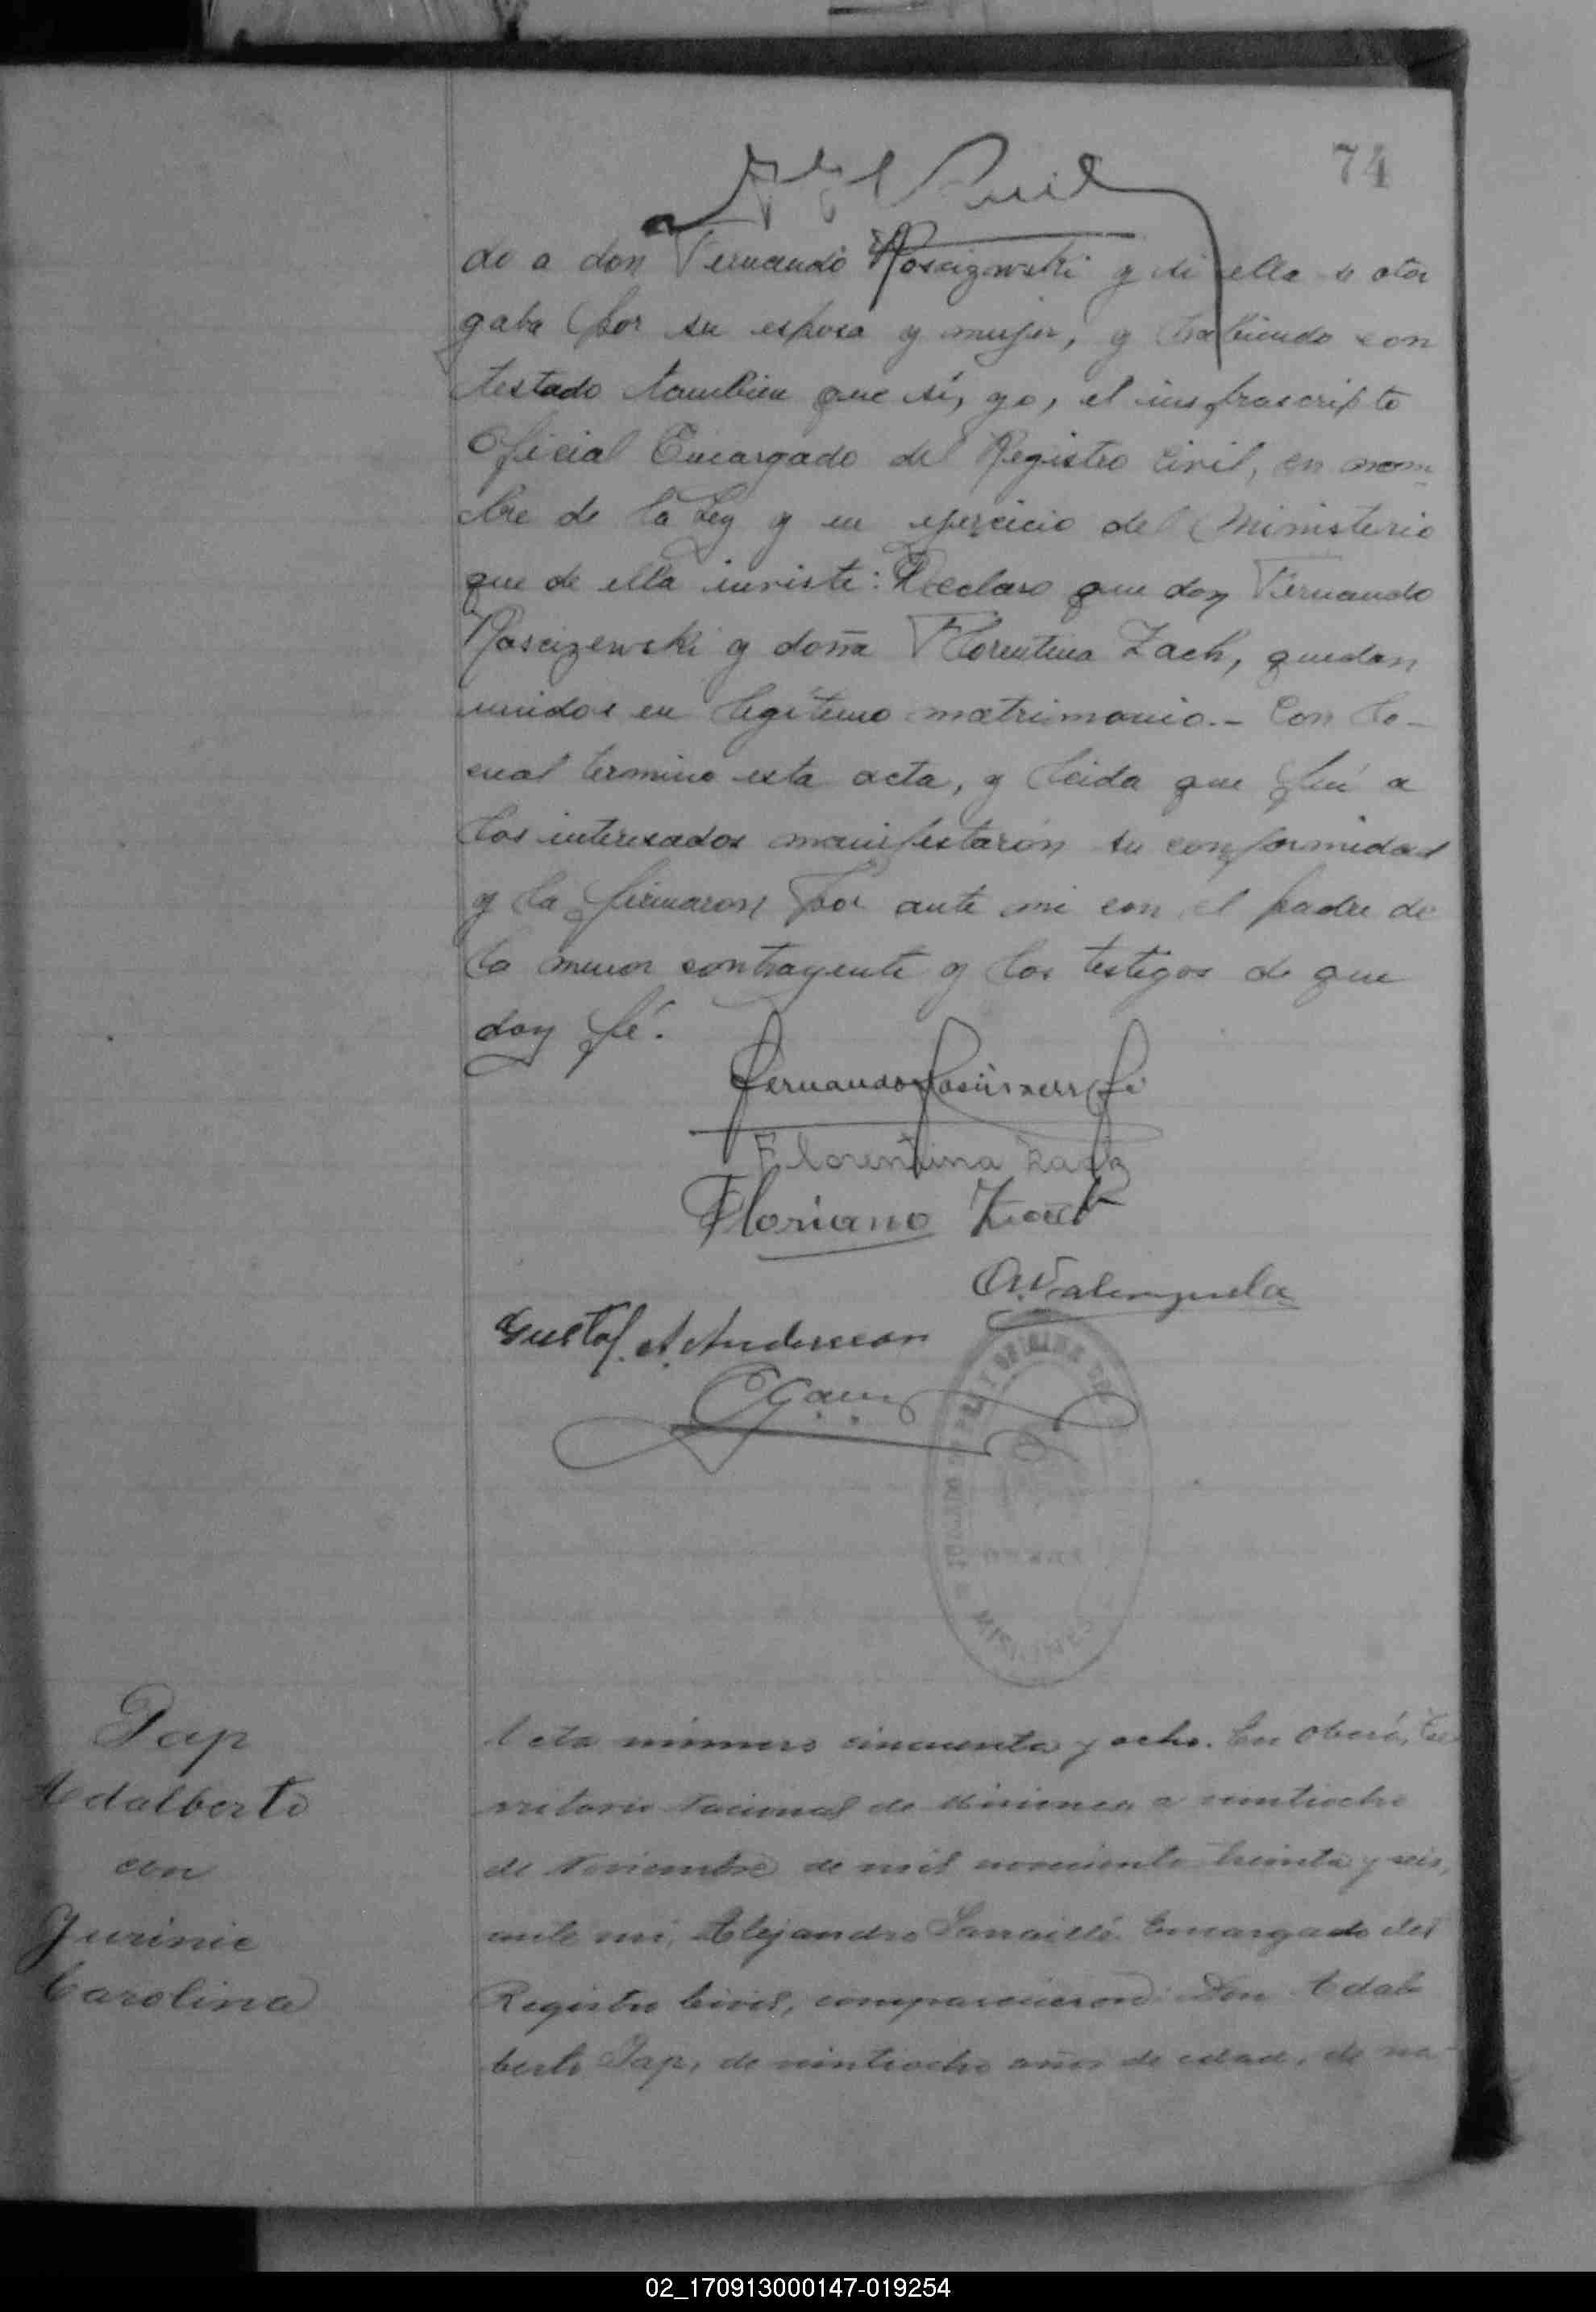 74
do a don Fernando Roscizewski y si ella se otor
gaba por su esposa y mujer, y habiendo con
testado tambien que sí, yo, el infrascripto
Oficial Encargado del Registro Civil, en nom
bre de la Ley y en ejercicio del Ministerio
que de ella inviste: Declaro que don Fernando
Roscizewski y doña Florentina Zach, quedan
unidos en legítimo matrimonio.- Con lo-
cual termino esta acta, y leida que fué a
los interesados manifestarón su conformidad
y la firmaron por ante mi con el padre de
la menor contrayente y los testigos de que
doy fé.
Fernando
Florentina Zach
Floriano
A. Valenzuela
Gustaf. A. Anderson
MISIONES
Pap
Adalberto
con
Jurinic
Carolina
Acta número cincuenta y ocho. En Oberá, Te
rritorio Nacional de Misiones a veintiocho
de Noviembre de mil novecientos treinta y seis,
ante mi, Alejandro Encargado del
Registro Civil, comparecieron: Don Adal
berto Pap, de veintiocho años de edad, de na-
02_170913000147-019254